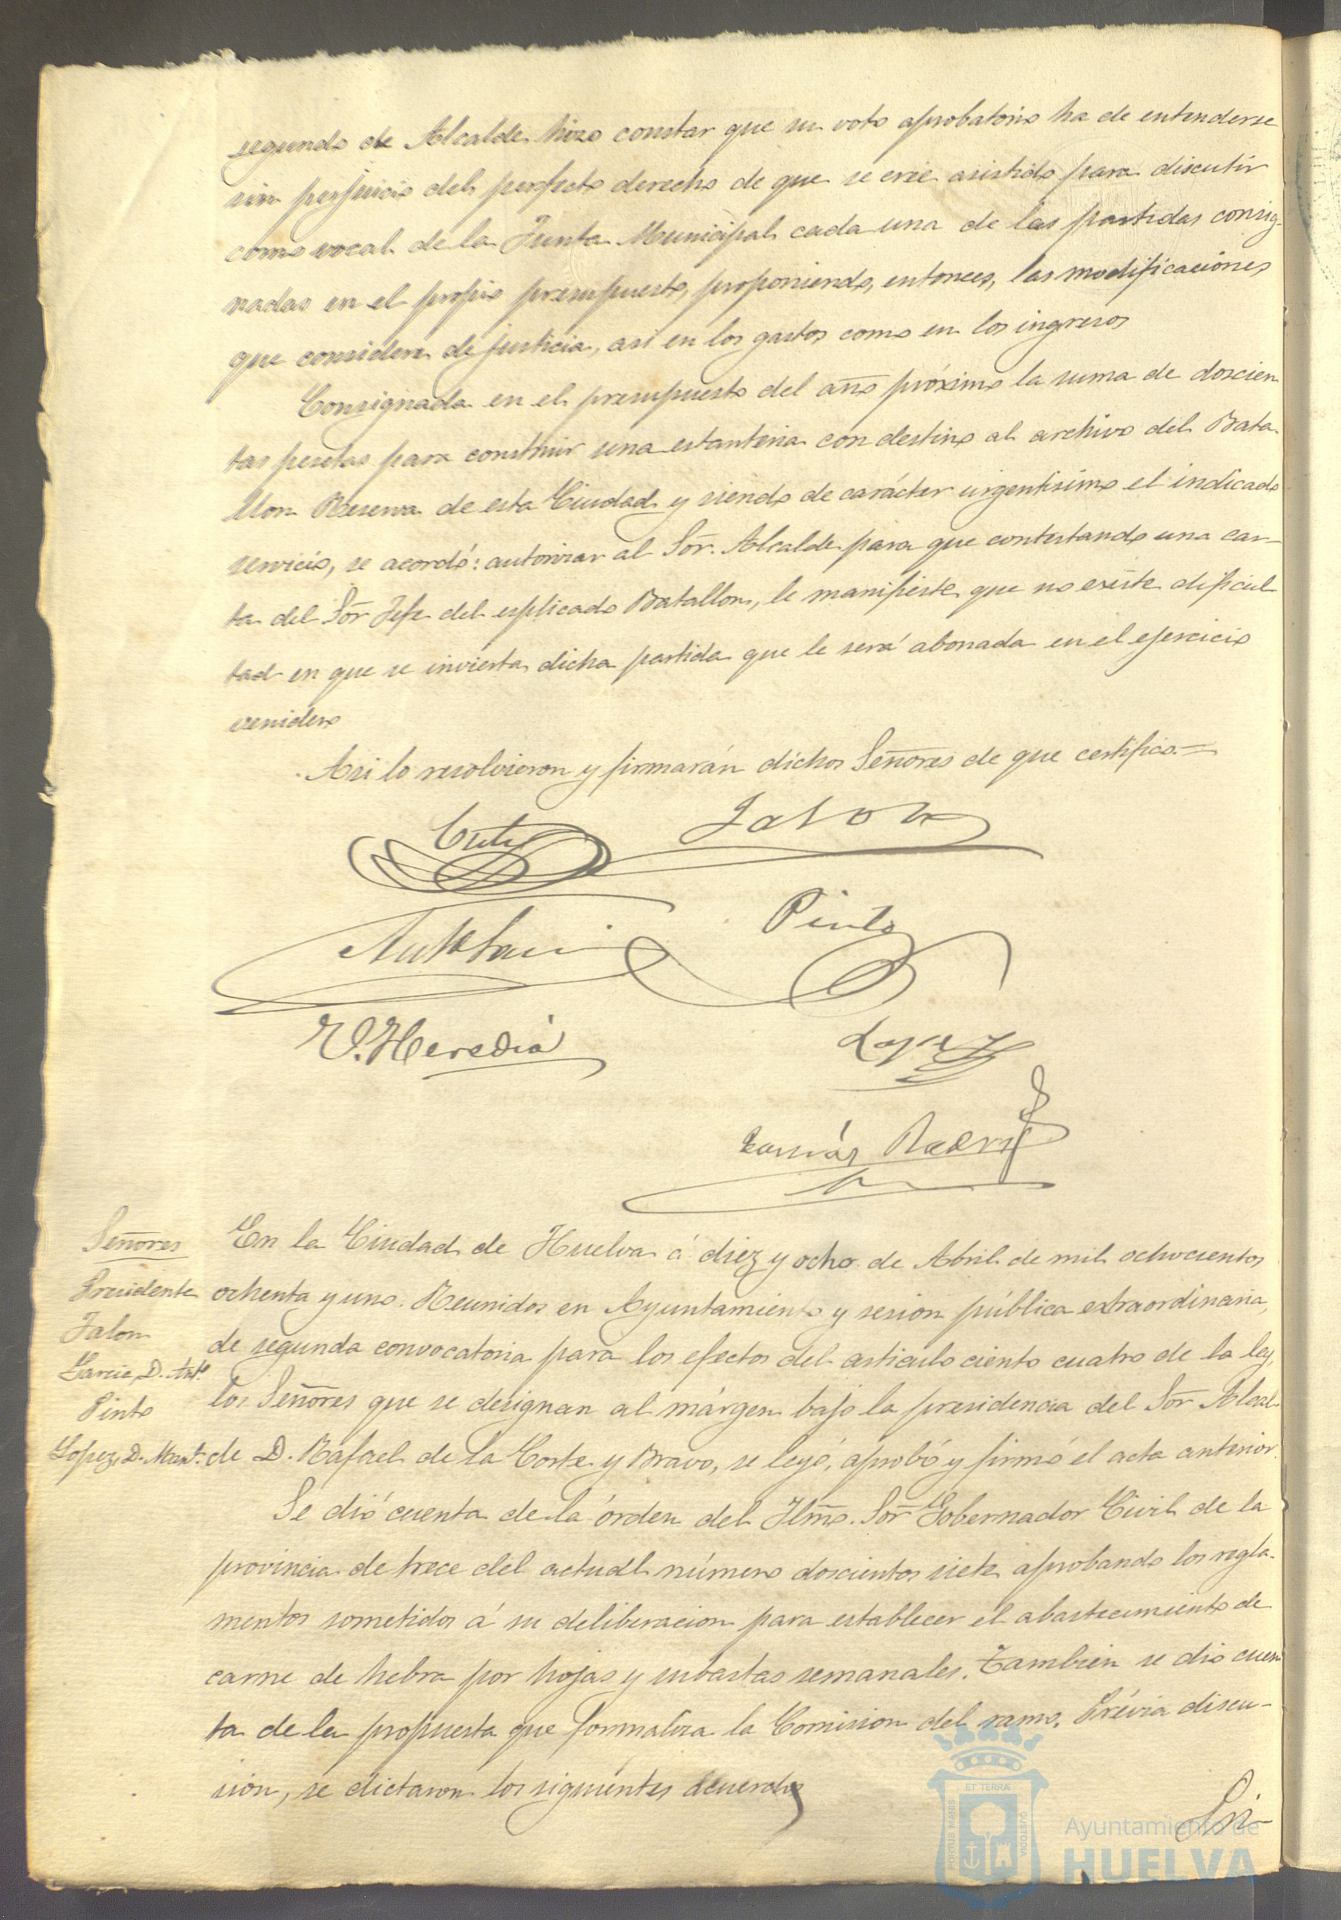 segundo de Alcalde hizo constar que su voto aprobatorio ha de entenderse
sin perjuicio del perfecto derecho de que se cree asistido para discutir
como vocal de la Junta Municipal cada una de las partidas consig-
nadas en el propio presupuesto, proponiendo, entonces, las modificaciones
que considere de justicia, asi en los gastos como en los ingresos
Consignada en el presupuesto del año próximo la suma de doscien
tas pesetas para construir una estanteria con destino al archivo del Bata-
llon Reserva de esta Ciudad y siendo de carácter urgentisimo el indicado
servicio, se acordó: autorizar al Sor. Alcalde para que contestando una car-
ta del Sor Jefe del esplicado Batallon, le manifieste que no existe dificul
tad en que se invierta dicha partida que le será abonada en el ejercicio
venidero
Asi lo resolvieron y firmarán dichos Señores de que certifico=
Corte
Jalon
Pinto
V. Heredia
Lopez
Tomás
Señores
Presidente
Jalon
Garcia, D. Anto.
Pinto
Lopez, D. Manl.
En la Ciudad de Huelva á diez y ocho de Abril de mil ochocientos
ochenta y uno. Reunidos en Ayuntamiento y sesion pública extraordinaria,
de segunda convocatoria para los efectos del articulo ciento cuatro de la ley,
los Señores que se designan al márgen bajo la presidencia del Sor Alcal-
de D. Rafael de la Corte y Bravo, se leyó, aprobó y firmó el acta anterior.
Se dió cuenta de la órden del Ilmo. Sor Gobernador Civil de la
provincia de trece del actual número doscientos siete aprobando los regla-
mentos sometidos á su deliberacion para establecer el abastecimiento de
carne de hebra por hojas y subastas semanales. Tambien se dió cuen
ta de la propuesta que formaliza la Comision del ramo. Prévia discu-
sion, se dictaron los siguientes acuerdos
Pri-
ET TERRÆ
PORTUS MARIS
CUSTODIA
Ayuntamiento de
HUELVA